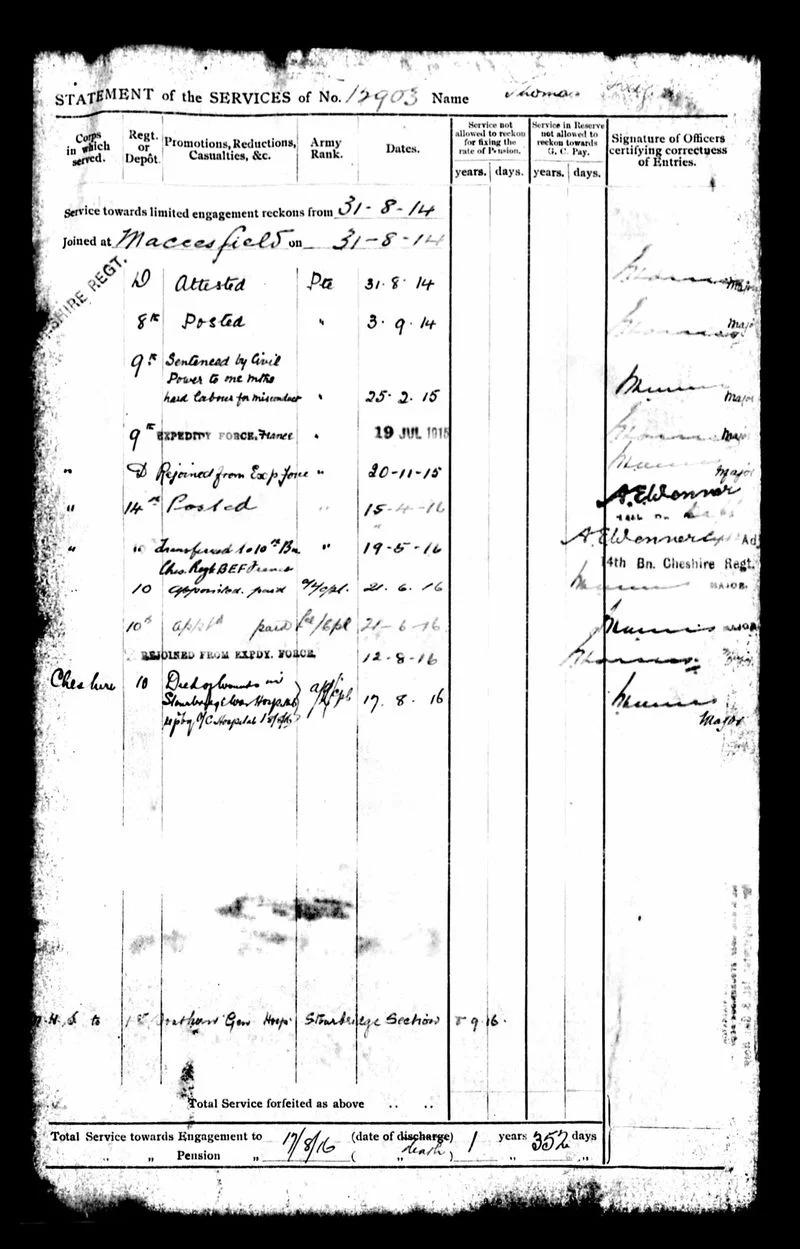 STATEMENT of the SERVICES of No. 12903 Name Thomas
Corps in which served. Regt. or Depôt. Promotions, Reductions, Casualties, &c. Army Rank. Dates. Service not allowed to reckon for fixing the rate of Pension. Service in Reserve not allowed to reckon towards G. C. Pay. Signature of Officers certifying correctness of Entries.
years. days. years. days.
Service towards limited engagement reckons from 31-8-14
Joined at Macclesfield on 31-8-14
SHIRE REGT.
D Attested Pte 31. 8. 14 Major
8th Posted " 3. 9. 14 Major
9th Sentenced by Civil
Power to one mths
hard labour for misconduct " 25. 2. 15 Major
9th EXPEDITY FORCE, France " 19 JUL 1915 Major
" D Rejoined from Exp Force " 20-11-15 Major
" 14th Posted " 15-4-16 A.E.Wenner
" " Transferred to 10th Bn " 19-5-16 A.E.Wenner Capt Ad
Ches. Regt BEF France 14th Bn. Cheshire Regt.
10 appointed. paid a/l/cpl. 21. 6. 16 MAJOR.
10th apptd paid lce/Cpl 21-6-16 MAJOR
REJOINED FROM EXPDY. FORCE. 12-8-16 Major
Cheshire 10 Died of wounds in
Stourbridge War Hospital 17. 8. 16
O/C Hospital Major
to 1st Southern Gen Hosp Stourbridge Section 9 16.
Total Service forfeited as above .. ..
Total Service towards Engagement to 17/8/16 (date of discharge) 1 years 352 days
" " Pension " ( " death ) " "